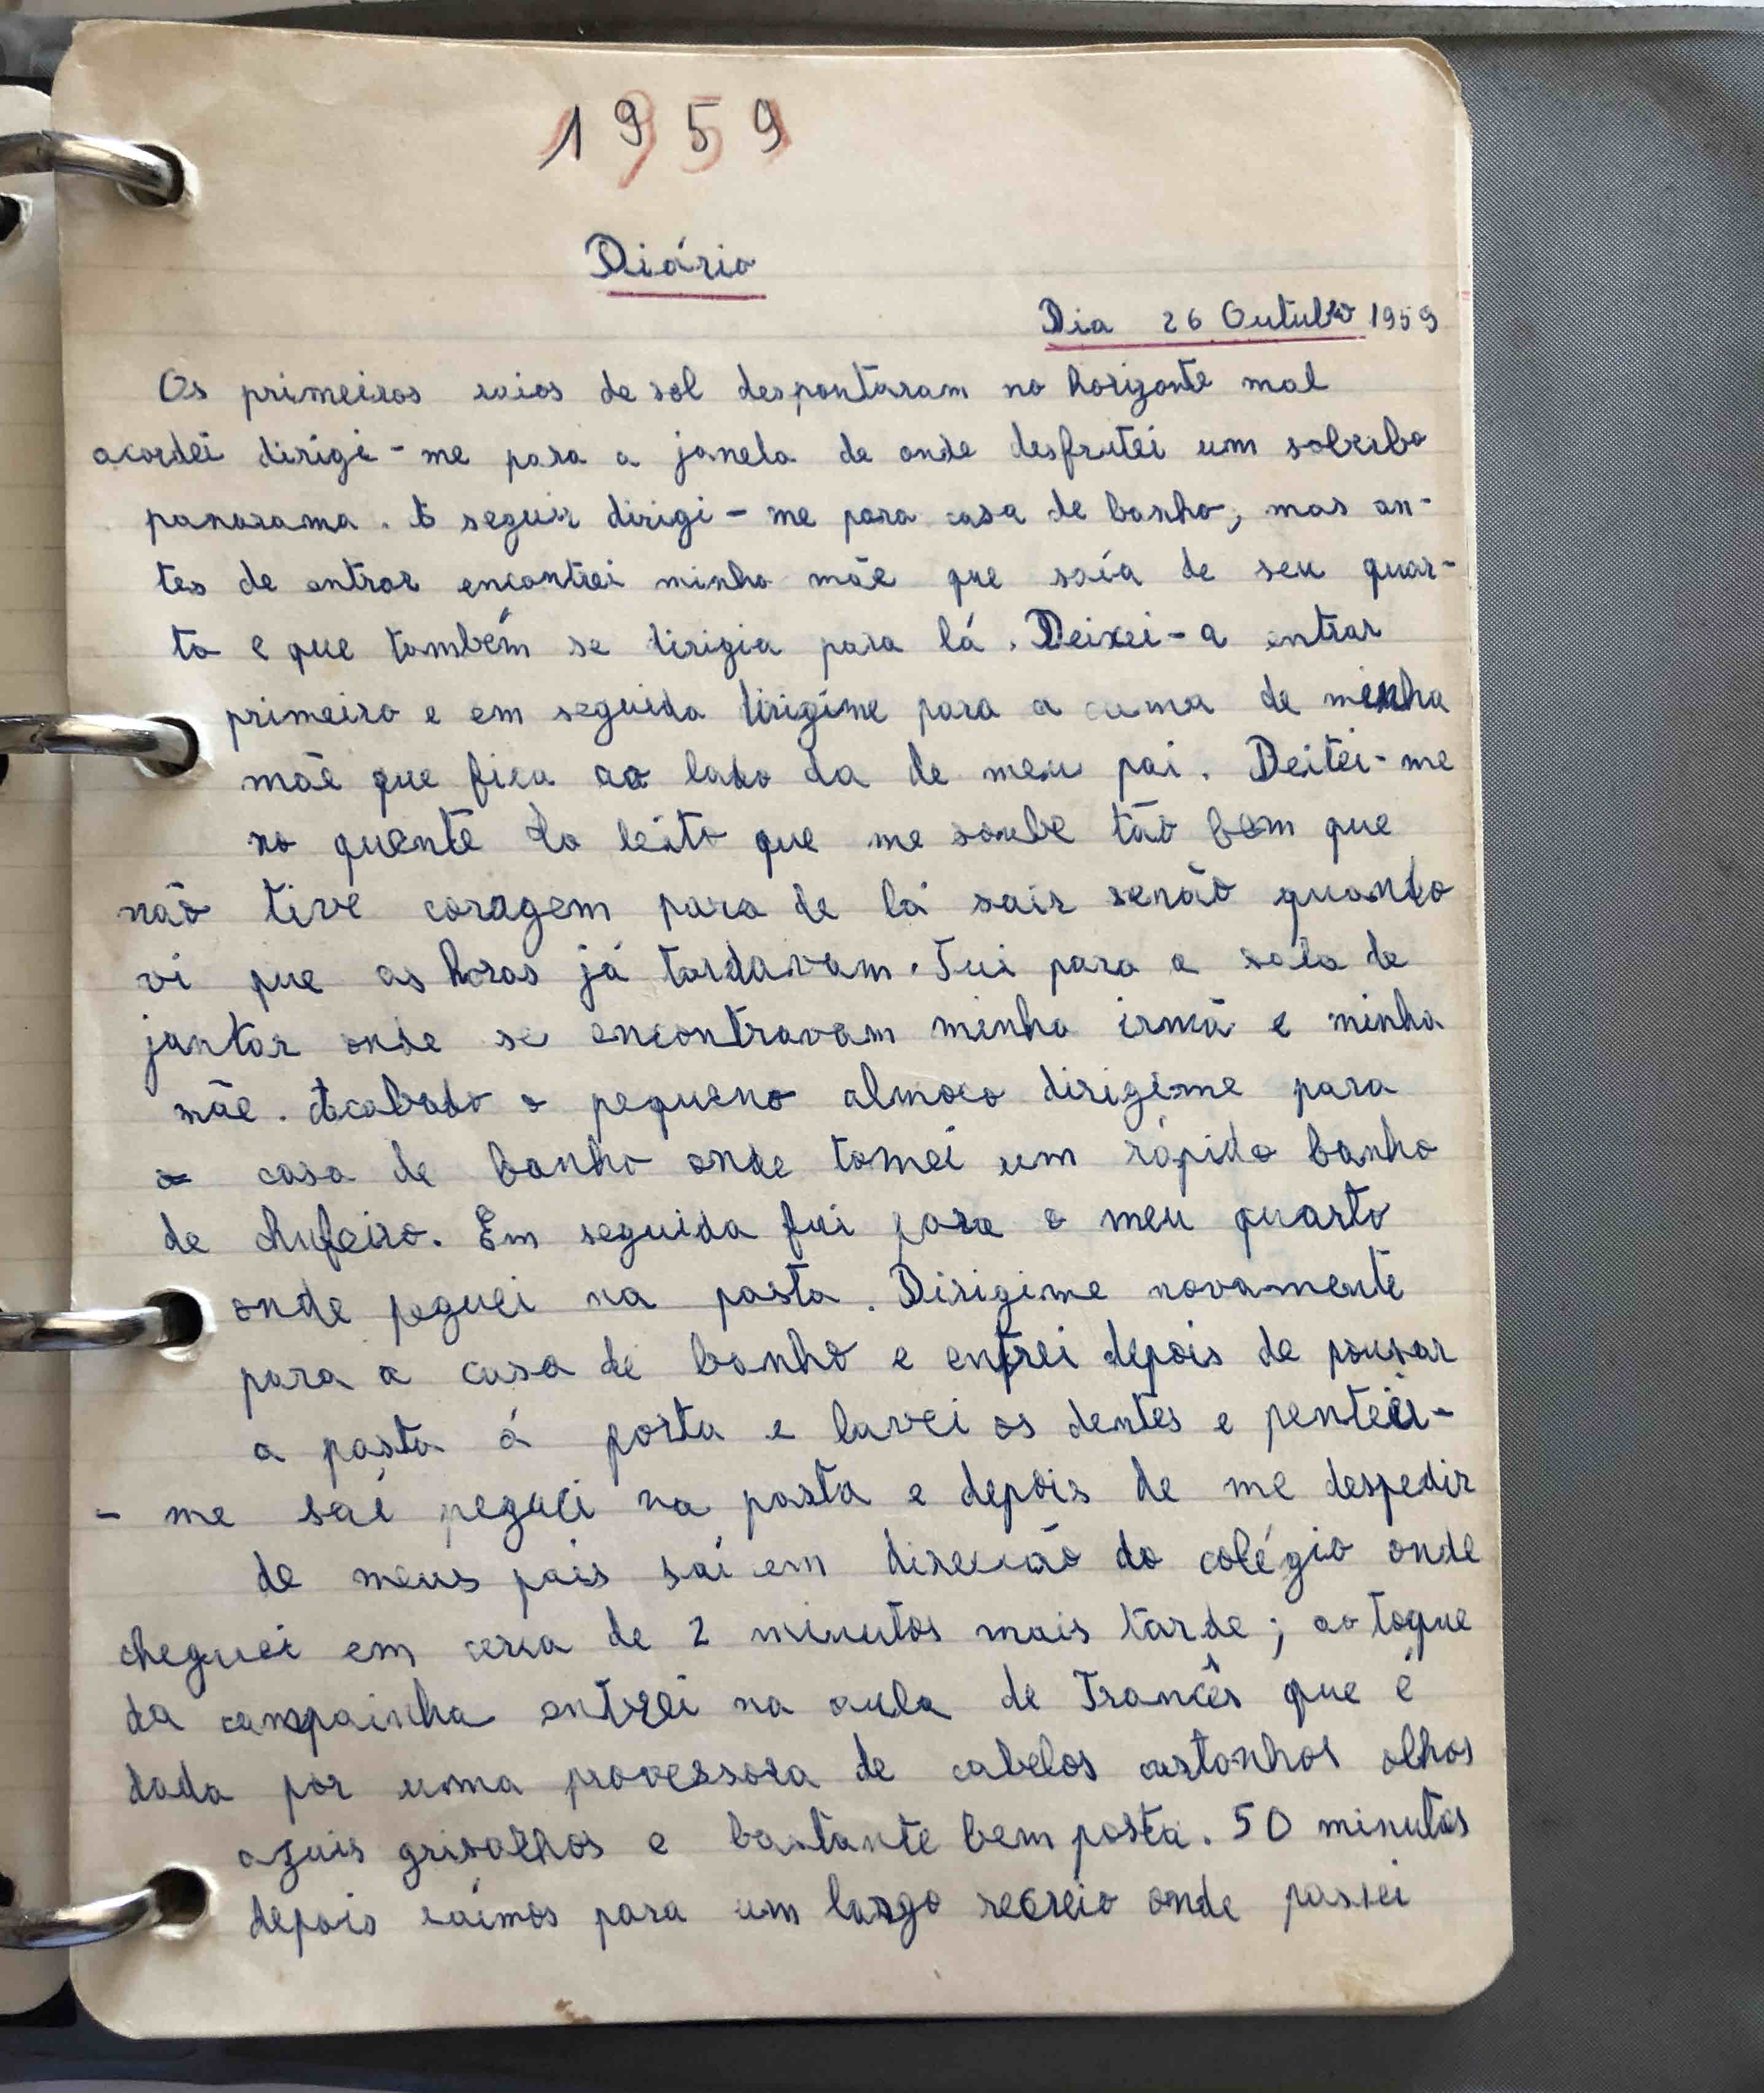 1959
Diário
Dia 26 Outubro 1959
Os primeiros raios de sol despontaram no horizonte mal
acordei dirigi-me para a janela de onde desfrutei um soberbo
panorama. A seguir dirigi-me para casa de banho, mas an-
tes de entrar encontrei minha mãe que saía de seu quar-
to e que também se dirigia para lá. Deixei-a entrar
primeiro e em seguida dirigíme para a cama de minha
mãe que fica ao lado da de meu pai. Deitei-me
no quente do leito que me soube tão bem que
não tive coragem para de lá sair senão quando
vi que as horas já tardavam. Fui para a sala de
jantar onde se encontravam minha irmã e minha
mãe. Acabado o pequeno almoco dirigime para
a casa de banho onde tomei um rápido banho
de chufeiro. Em seguida fui para o meu quarto
onde peguei na pasta. Dirigime novamente
para a casa de banho e entrei depois de pousar
a pasta á porta e lavei os dentes e penteei-
- me saí peguei na pasta e depois de me despedir
de meus pais saí em direcão do colégio onde
cheguei em cerca de 2 minutos mais tarde; ao toque
da campainha entrei na aula de Francês que é
dada por uma provessora de cabelos castanhos olhos
azuis grisalhos e bastante bem posta. 50 minutos
depois saímos para um largo recreio onde passei